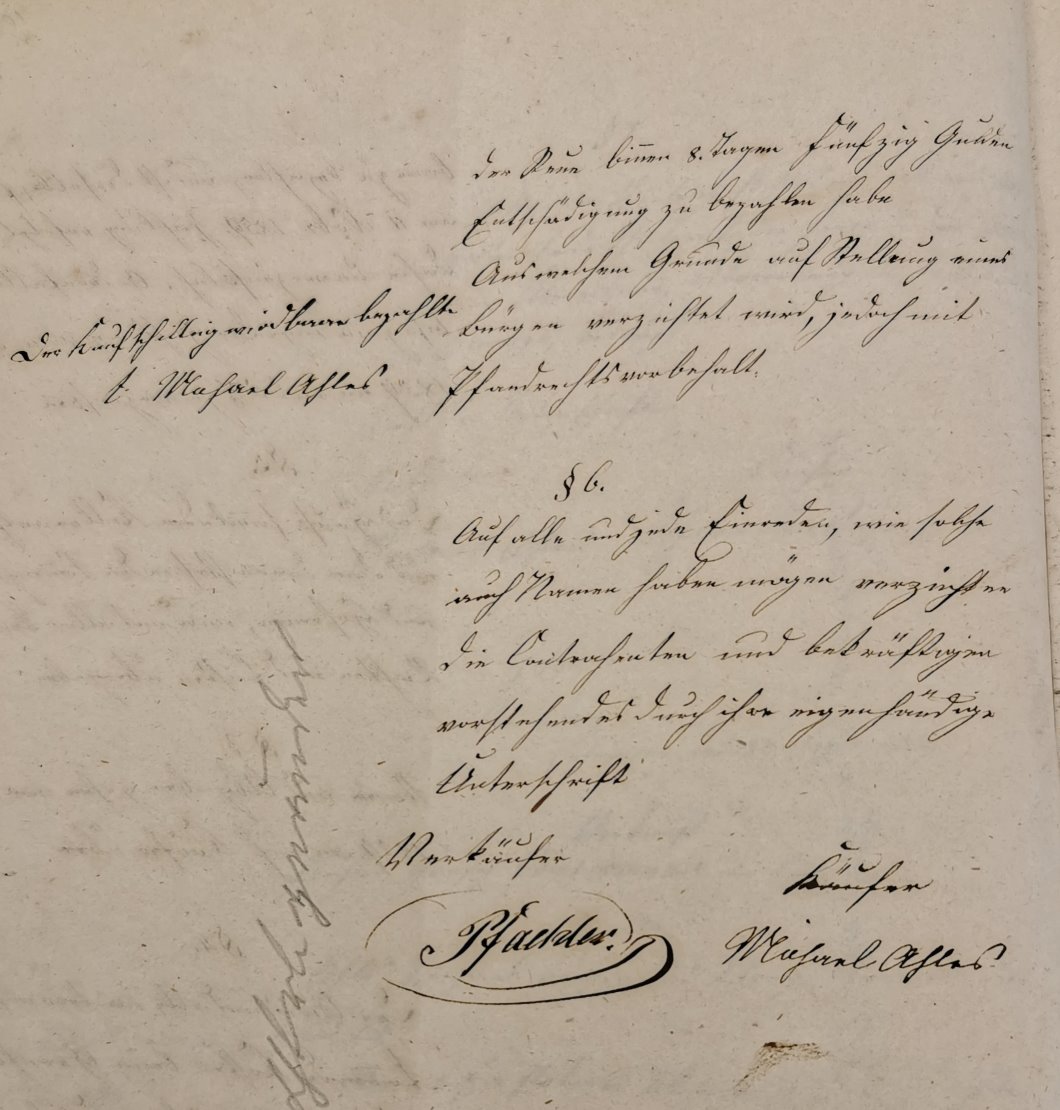 der Reue binnen 8. Tagen fünfzig Gulden
Entschädigung zu bezahlen habe
Aus welchem Grunde auf Stellung eines
Bürgen verzichtet wird, jedoch mit
Pfandrechtsvorbehalt.
Der Kaufschilling wird baar bezahlt
t. Michael Ahles
§ 6.
Auf alle und jede Einreden, wie solche
auch Namen haben mögen verzichten
die Contrahenten und bekräftigen
vorstehendes durch ihre eigenhändige
Unterschrift
Verkäufer
Pfaehler.
Käufer
Michael Ahles